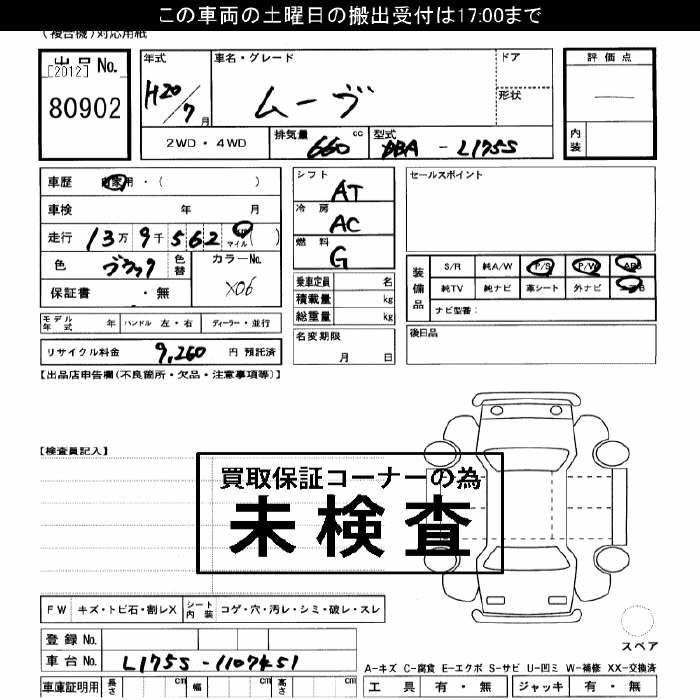 この車両の土曜日の搬出受付は17:00まで
(複合機)対応用紙
出品No.
[2012]
80902
年式
H20/7月
車名・グレード
ムーヴ
ドア
形状
評価点
—
内装
2WD・4WD
排気量 660 cc
型式 DBA - L175S
車歴 自家用・( )
車検 年 月
走行 13万9千562 マイル( )
色 ブラック 色替
カラーNo. X06
保証書 ・無
モデル年式 年 ハンドル 左・右 ディーラー・並行
リサイクル料金 9,260 円 預託済
シフト AT
冷房 AC
燃料 G
乗車定員 名
積載量 kg
総重量 kg
名変期限
月 日
セールスポイント
装備品
S/R 純A/W P/S P/W ABS
純TV 純ナビ 革シート 外ナビ
ナビ型番:
後日品
【出品店申告欄(不良箇所・欠品・注意事項等)】
【検査員記入】
買取保証コーナーの為
未検査
FW キズ・トビ石・割レX シート内装 コゲ・穴・汚レ・シミ・破レ・スレ
登録No.
車台No. L175S-1107451
車庫証明用 長さ cm 幅 cm 高さ cm
スペア
A-キズ C-腐食 E-エクボ S-サビ U-凹ミ W-補修 XX-交換済
工具 有・無 ジャッキ 有・無